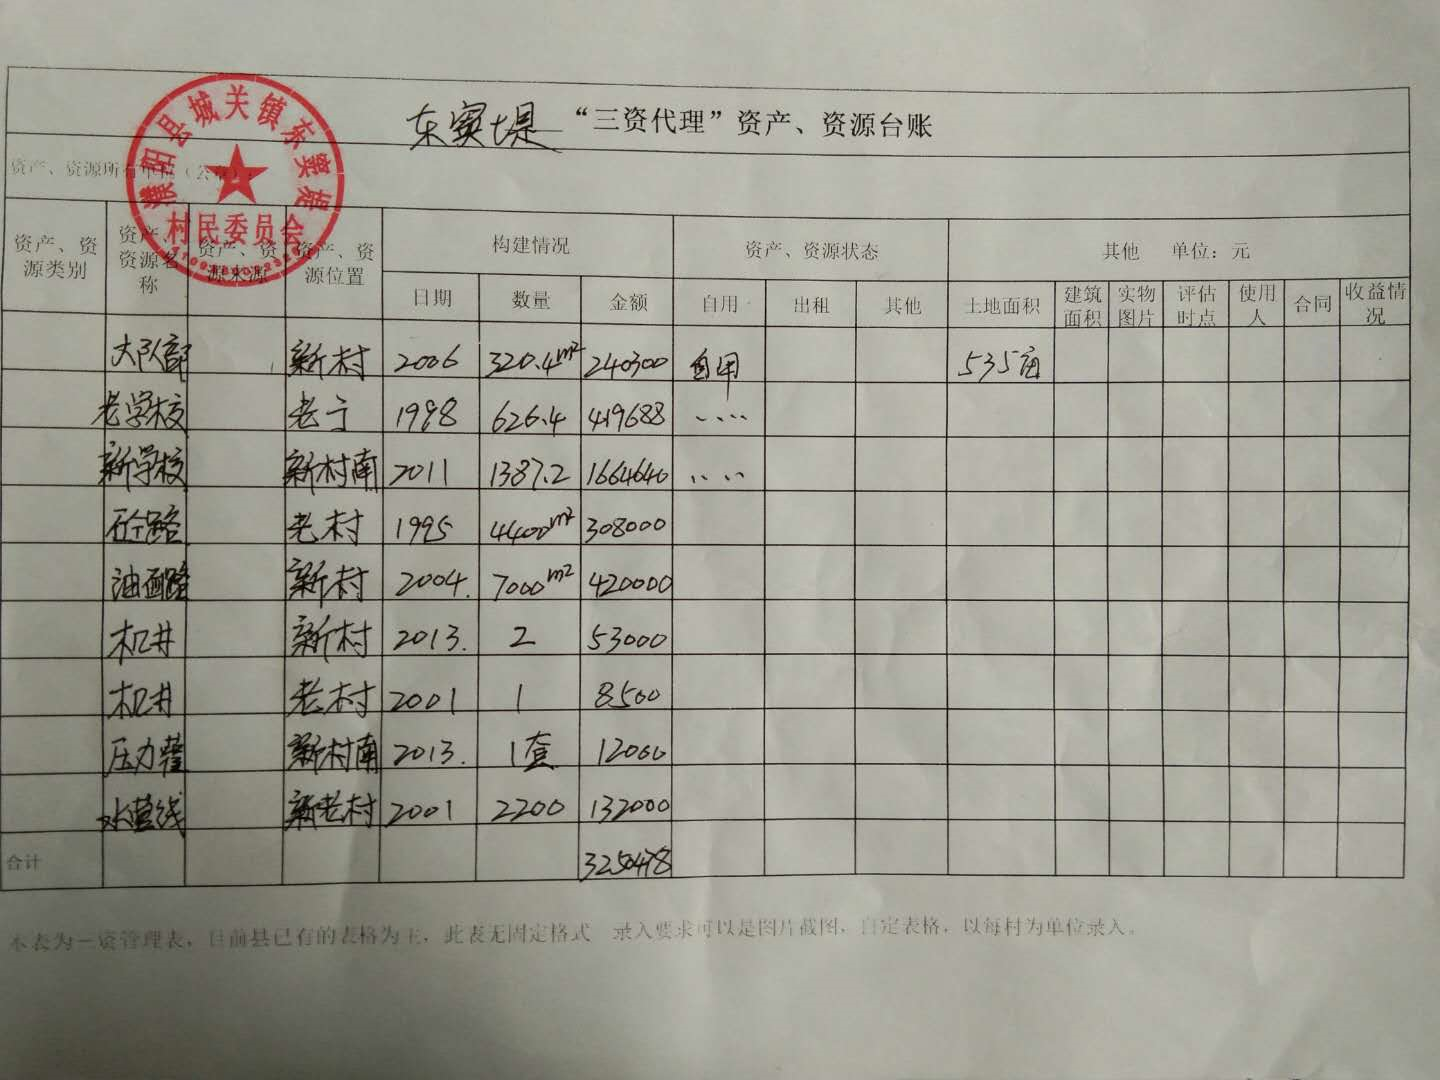 东窦堤 “三资代理”资产、资源台账
濮阳县城关镇东窦堤
村民委员会
资产、资源所有单位（公章）：
资产、资源类别 资产、资源名称 资产、资源来源 资产、资源位置 构建情况 资产、资源状态 其他 单位：元
日期 数量 金额 自用 出租 其他 土地面积 建筑面积 实物图片 评估时点 使用人 合同 收益情况
大队部 新村 2006 320.4m² 240300 自用 535亩
老学校 老 1998 626.4 419688 、、、、
新学校 新村南 2011 1387.2 1664640 、、、、
砼路 老村 1995 4400m² 308000
油面路 新村 2004. 7000m² 420000
机井 新村 2013. 2 53000
机井 老村 2001 1 8500
压力罐 新村南 2013. 1套 12000
水管线 新老村 2001 2200 132000
合计 3250478
本表为三资管理表，目前县已有的表格为主，此表无固定格式 录入要求可以是图片截图，自定表格，以每村为单位录入。